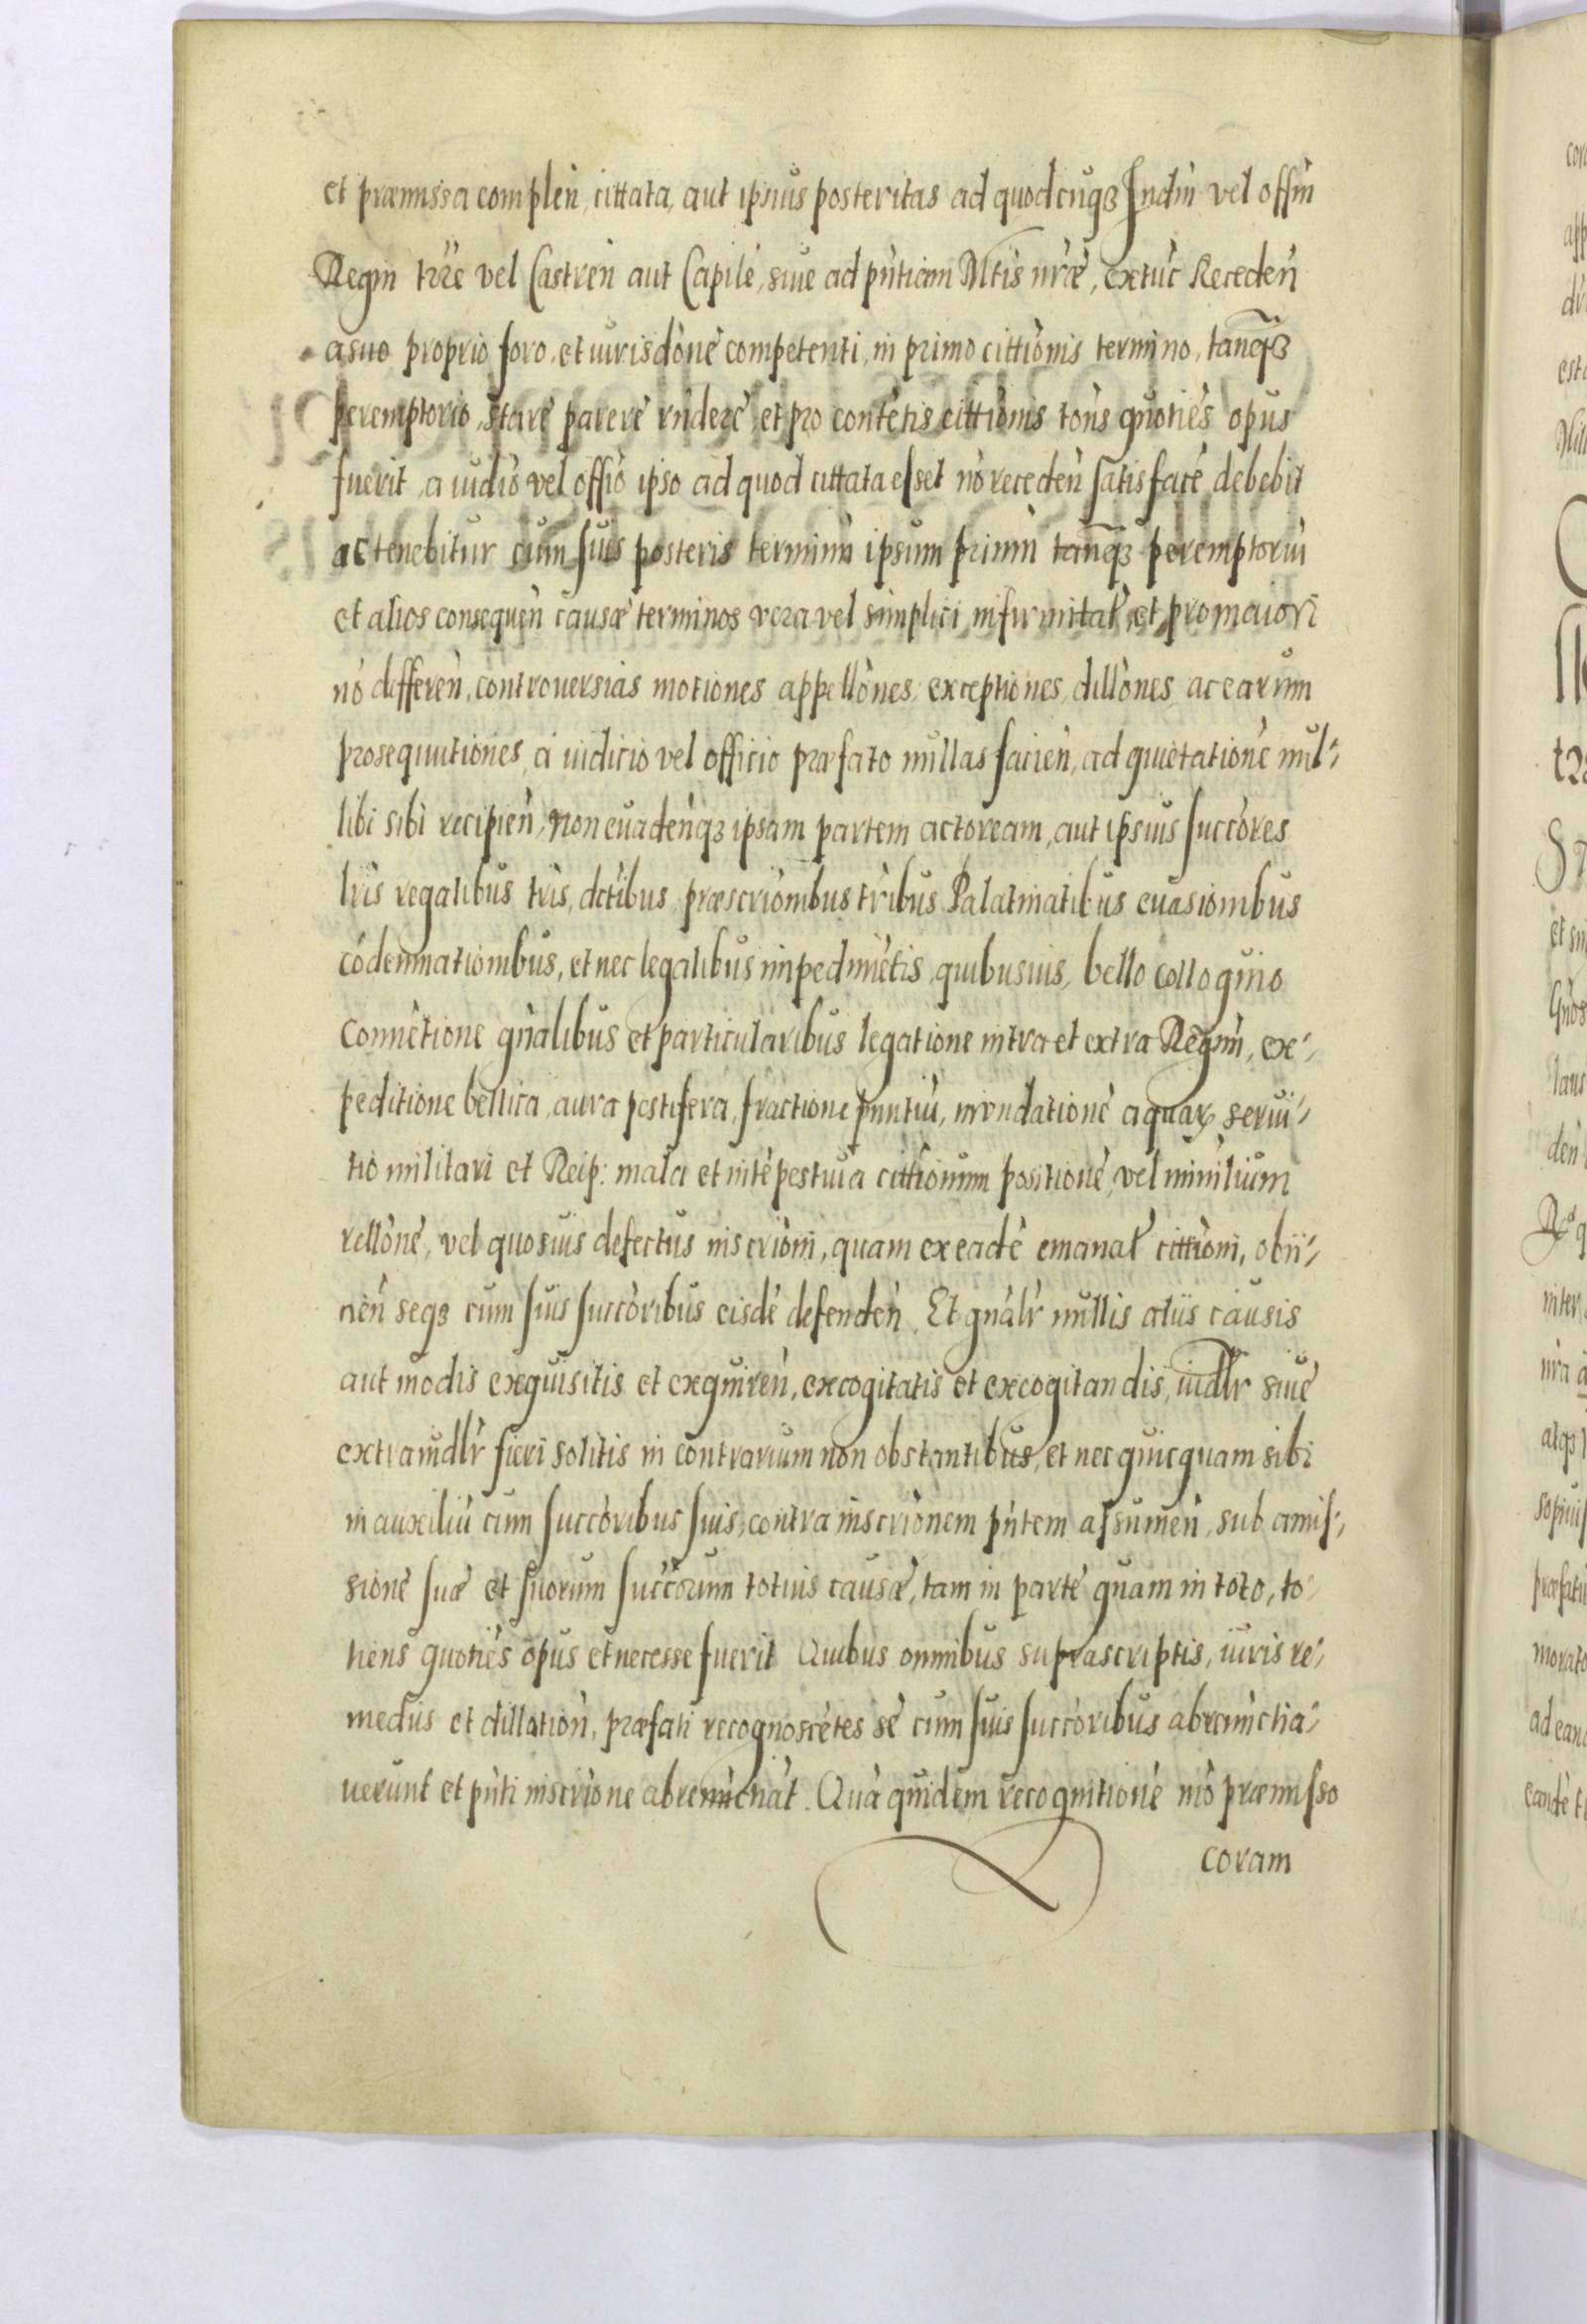 et præmissa complen̄, cittata, aut ipsius posteritas ad quodcūqʒ Iudiū vel offm̄
Regm̄ tr̄re vel Castren̄ aut Capitlē, siue ad pn̄tiam Mtis nrǣ, extūc Receden̄
a suo proprio foro, et iurisdōnē competenti, in primo cittiōnis termino, tanqʒ̄
peremptorio, starē parerē rn̄derē, et pro contētis cittiōnis toñs quotiēs opus
fuerit, a iudiō vel offiō ipso ad quod cittata esset nō receden̄ satisfacē debebit
ac tenebitur cum suis posteris terminū ipsum primū tanqʒ̄ peremptoriū
et alios consequen̄ causæ terminos vera vel simplici infirmitatē, et pro maiori
nō defferen̄, controuersias motiones appellōnes, exceptiones, dillōnes, ac earum
prosequutiones, à iudicio vel officio præfato nullas facien̄, ad quietationē nul-
libi sibi recipien̄, non euaden̄qʒ ipsam partem actoream, aut ipsius succōres
lrīs regalibus trīs, dctībus, præscriōnibus trībus Palatinatibus euasionibus
cōdemnationibus, et nec legalibus impedimētis, quibusuis, bello colloquio
Conuētione gnālibus et particularibus legatione intra et extra Regnū, ex-
peditione bellica, aura pestifera, fractione pontiū, inundationē aquarꝝ serui-
tio militari et Reip: mala et intēpestiua cittiōnum positionē, vel minīlium
rellōnē, vel quosuis defectus inscriōni, quam ex eadē emanat̄ cittiōni, obii-
cien̄ seqʒ cum suis succōribus eisdē defenden̄. Et gnālr̄ nullis aliis causis
aut modis exquisitis et exquiren̄, excogitatis et excogitandis, iudlr̄ siue
extraiudlr̄ fieri solitis in contrarium non obstantibus, et nec quicquam sibi
in auxiliū cum succōribus suis, contra inscriōnem pn̄tem assumen̄, sub amis-
sionē suæ et suorum succōrum totius causæ, tam in partē quam in toto, to-
tiens quotiēs opus et necesse fuerit Quibus omnibus suprascriptis, iuris re-
mediis et dillation̄, præfati recognoscētes sē cum suis succōribus abrenūctia-
uerunt et pn̄ti inscriōne abrenūctiāt. Quā quidem recognitionē mō præmisso
coram